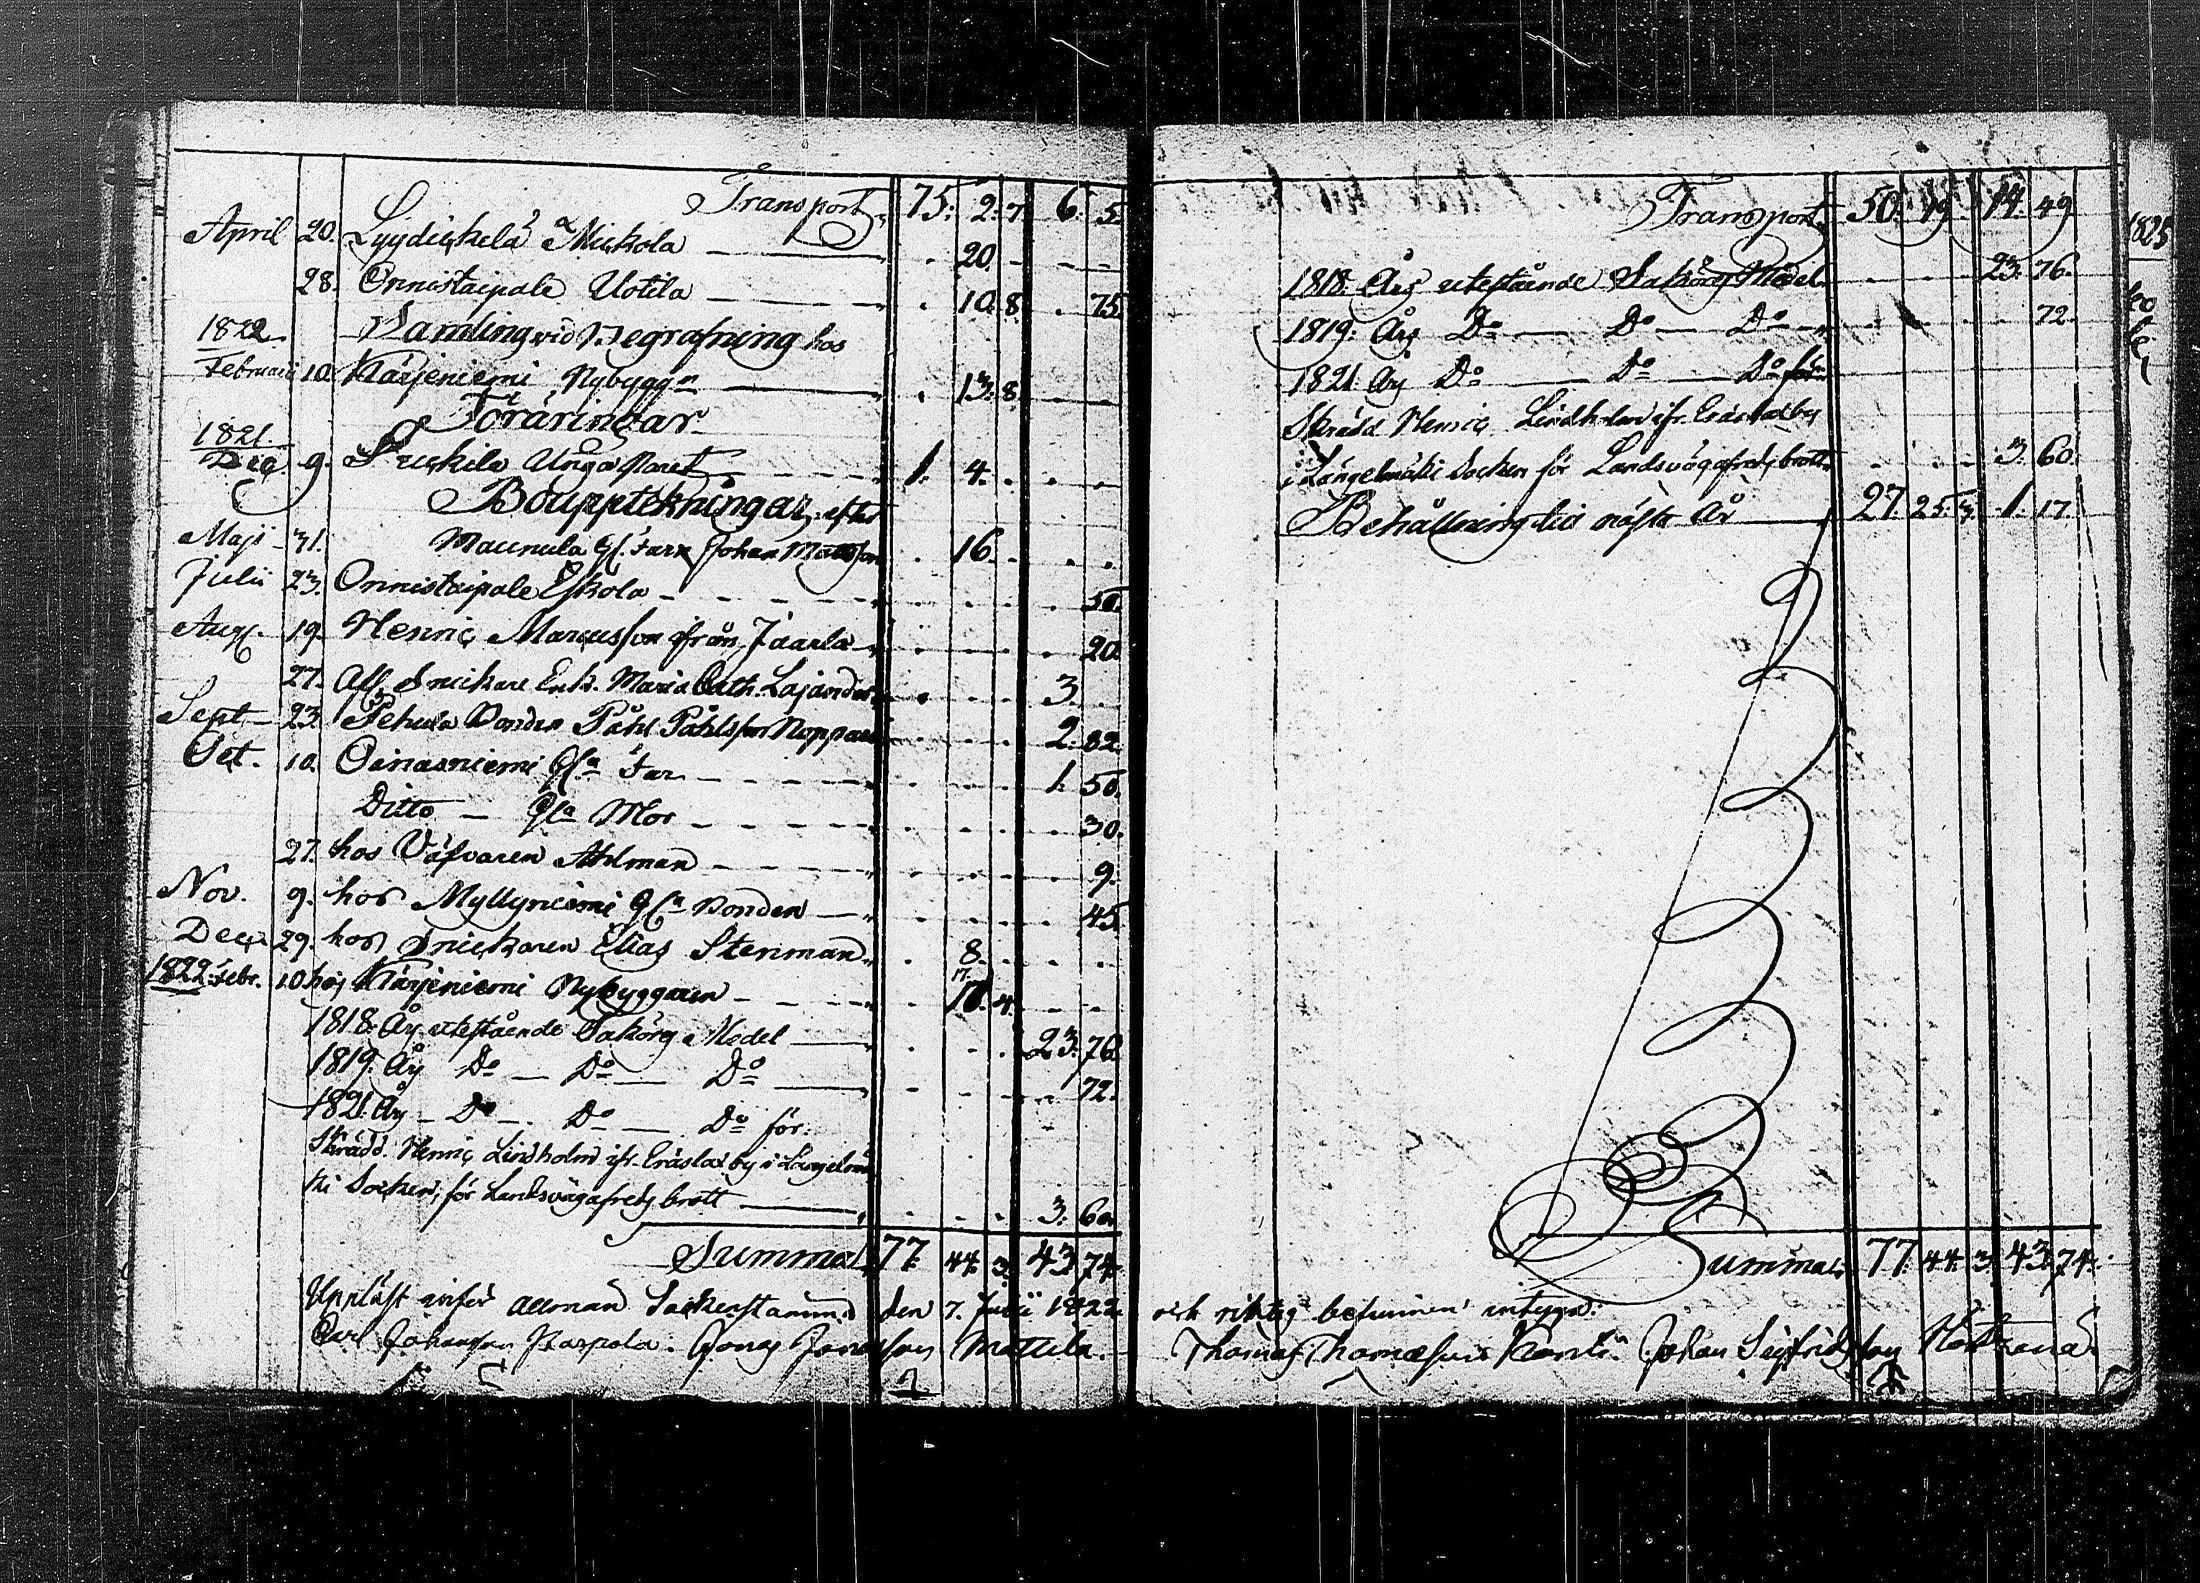 Transport 75. 2. 7. 6. 5.
April 20. Lyydickelä Mickola — 20. —
28. Onnistaipale Uotila — 10. 8. 75.
1822 Samling vid Begrafning hos
Februarii 10. Kärjeniemi Nybyggn — 13. 8.
Föräringar
1821.
Dec. 9. Unga Paret — 1. 4.
Bouppteckningar efter
Maji 31. Maunula Gl. Farn Johan Mattsson 16.
Julii 23. Onnistaipale Eskola — 50.
Aug. 19. Henric Marcusson ifrån Jaarla — 20.
27. Afl. Snickare Enk. Maria Cath. Lajander 3.
Sept. 23. Pekula Bonden Påhl Påhlsson 2. 82.
Oct. 10. Oinasniemi Gla Far — 1. 50.
Ditto — Gla Mor — 30.
27. hos Väfvaren Ahlman — 9.
Nov. 9. hos Myllyniemi Gla Bonden — 45.
Dec. 29. hos Snickaren Elias Stenman 8.
1822. Febr. 10. hos Kärjeniemi Nybyggaren — 17. 4.
1818. Års utestående Saköres Medel — 23. 76.
1819. Års Do — Do — Do — 72.
1821. Års — Do — Do — Do för
Skrädd. Henric Lindholm ifr. Eräslax by i Längelmä
ki Socken, för Landsvägafreds brott — 3. 60.
Summa 77. 44. 3. 43. 74.
Uppläst inför allmän Sockenstämma den 7. Julii 1822
Carl Johansson Jonas Jonasson Mattila.
Transport 50. 19. 14. 49.
1818. Års utestående Saköres Medel 23. 76.
1819. Års Do — Do — Do — 72.
1821. Års Do — Do — Do för
Skrädd Henric Lindholm ifr. Eräslax by
i Längelmäki Socken för Landsvägafreds brott 3. 60.
Behållning til näste År 27. 25. 3. 1. 17.
Summa 77. 44. 3. 43. 74.
och riktig befunnen intyga:
Thomas Thomasson Johan Sigfridsson
1823